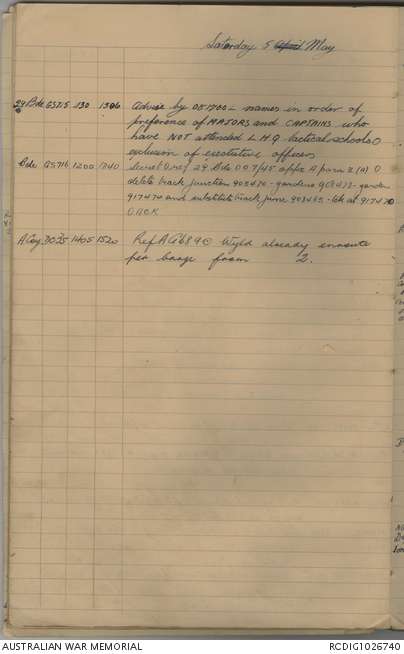 Saturday 5 April May
29 Bde GS715 130 1306 Advise by 051700 - names in order of
preference of MAJORS and CAPTAINS who
have NOT attended L.H.Q. tactical schools O
exclusion of executive officers
Bde GS716 1200 1340 29 Bde O O 7/45 appx A para 2 (a) O
delete track junction 903470 - gardens - garden
917470 and substitute track junc - tk at 917470
O ACK
A Coy 3025 1405 1520 Ref A A689 Wyld already enroute
per barge from 2.
AUSTRALIAN WAR MEMORIAL
RCDIG1026740